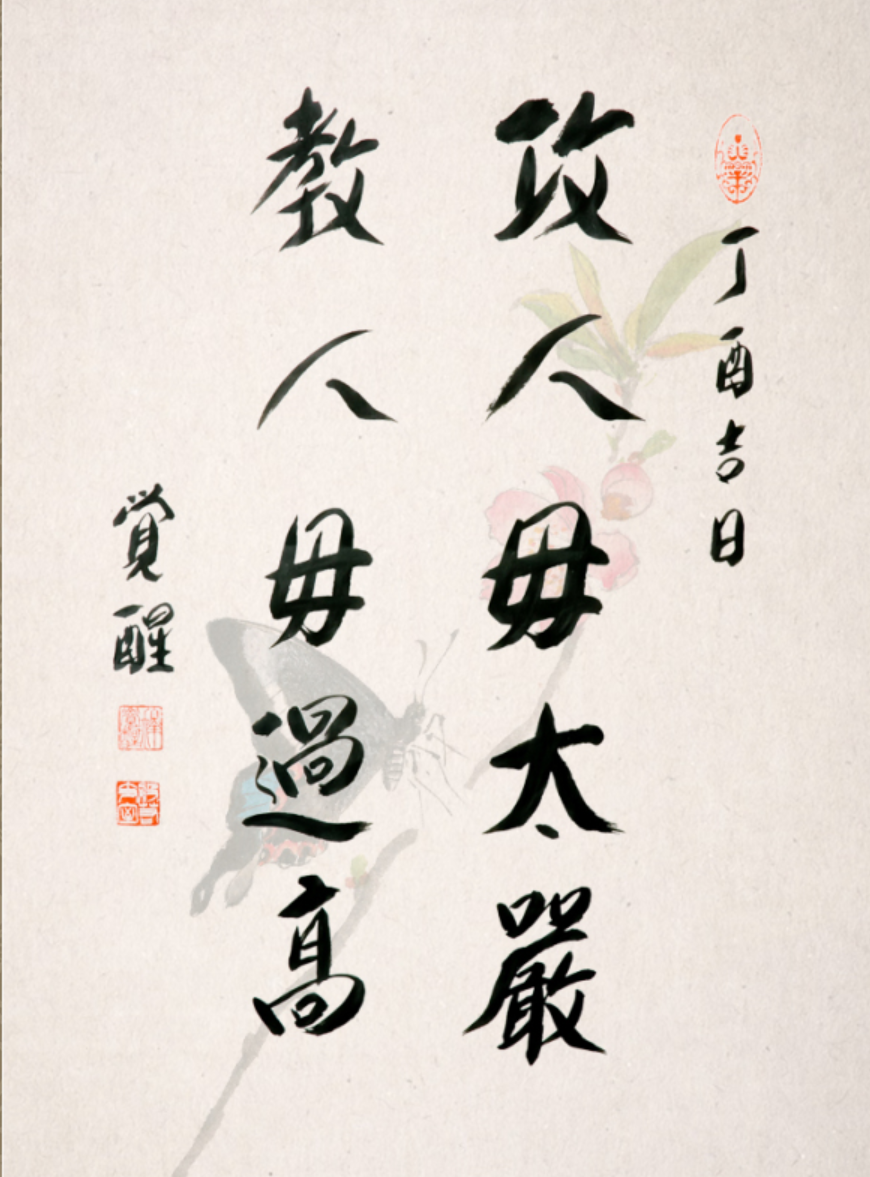 丁酉吉日
攻人毋太嚴
教人毋過高
覺醒